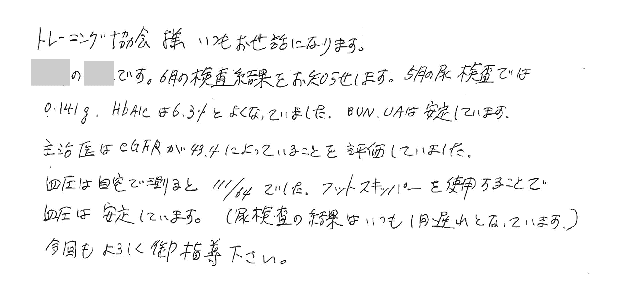 トレーニング協会 様 いつもお世話になります。
の です。6月の検査結果をお知らせします。5月の尿検査では
0.141g、HbA1cは6.3%とよくなっていました。BUN、UAは安定しています。
主治医はeGFRが43.4になっていることを評価していました。
血圧は自宅で測ると 111/64 でした。フットスキッパーを使用することで
血圧は安定しています。(尿検査の結果はいつも1月遅れとなっています。)
今回もよろしく御指導下さい。